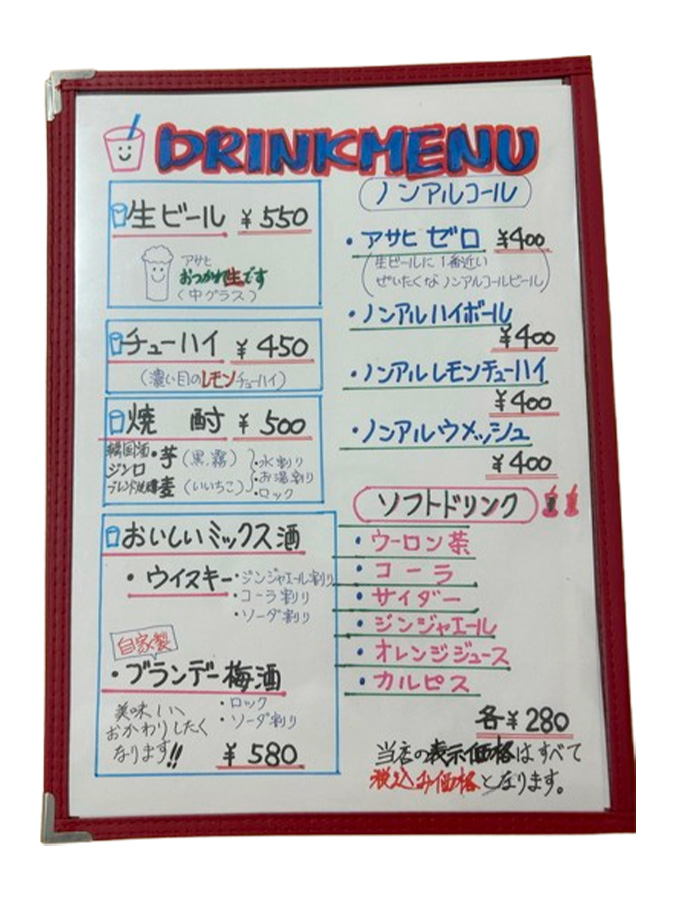 DRINKMENU
生ビール ¥550
アサヒ
おつかれ生です
(中グラス)
チューハイ ¥450
(濃い目のレモンチューハイ)
焼 酎 ¥500
韓国酒
ジンロ
ブレンド焼酎
・芋(黒霧)
・麦(いいちこ)
・水割り
・お湯割り
・ロック
おいしいミックス酒
・ウイスキー
・ジンジャエール割り
・コーラ割り
・ソーダ割り
自家製
・ブランデー梅酒
・ロック
・ソーダ割り
美味しい、
おかわりしたく
なります!!
¥580
ノンアルコール
・アサヒゼロ ¥400
(生ビールに1番近い
ぜいたくなノンアルコールビール)
・ノンアルハイボール
¥400
・ノンアルレモンチューハイ
¥400
・ノンアルウメッシュ
¥400
ソフトドリンク
・ウーロン茶
・コーラ
・サイダー
・ジンジャエール
・オレンジジュース
・カルピス
各¥280
当店の表示価格はすべて
税込み価格となります。